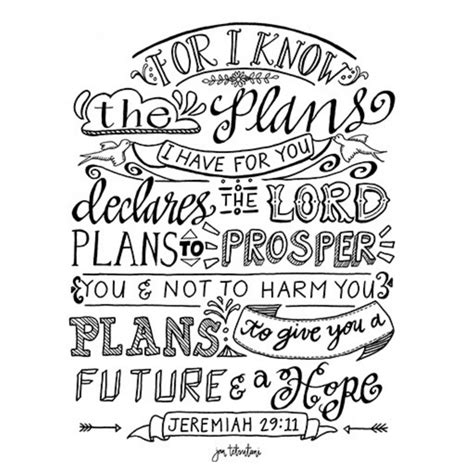 FOR I KNOW
the Plans
I HAVE FOR YOU
declares THE LORD
PLANS to PROSPER
YOU & NOT TO HARM YOU
PLANS to give you a
FUTURE & a Hope
JEREMIAH 29:11